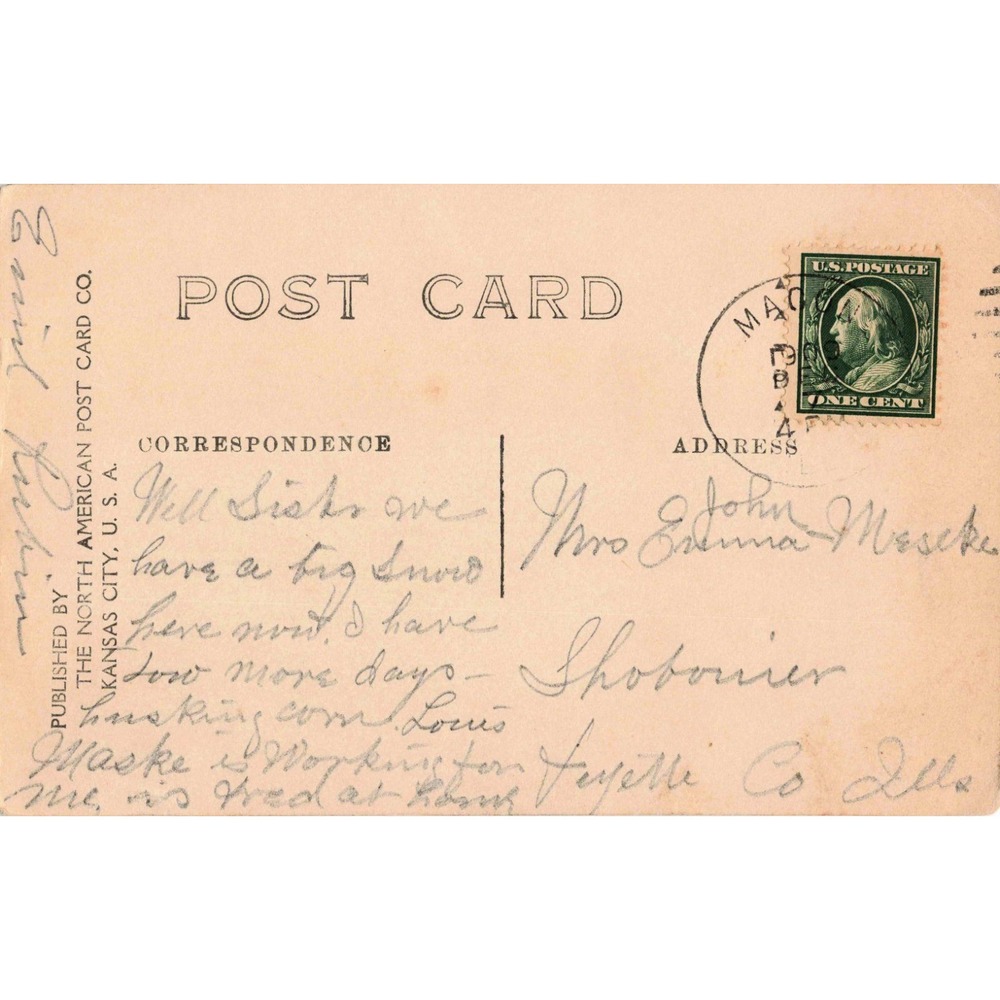 POST CARD
U.S. POSTAGE
ONE CENT
MAC
1909
4 PM
CORRESPONDENCE
ADDRESS
Well Sister we
have a big Snow
here now. I have
tow more days -
husking corn. Louis
Maske is Working for
me, is Fred at home
John
Mrs Emma Meseke
Shobonier
Fayette Co Ills
PUBLISHED BY
THE NORTH AMERICAN POST CARD CO.
KANSAS CITY, U. S. A.
Emil